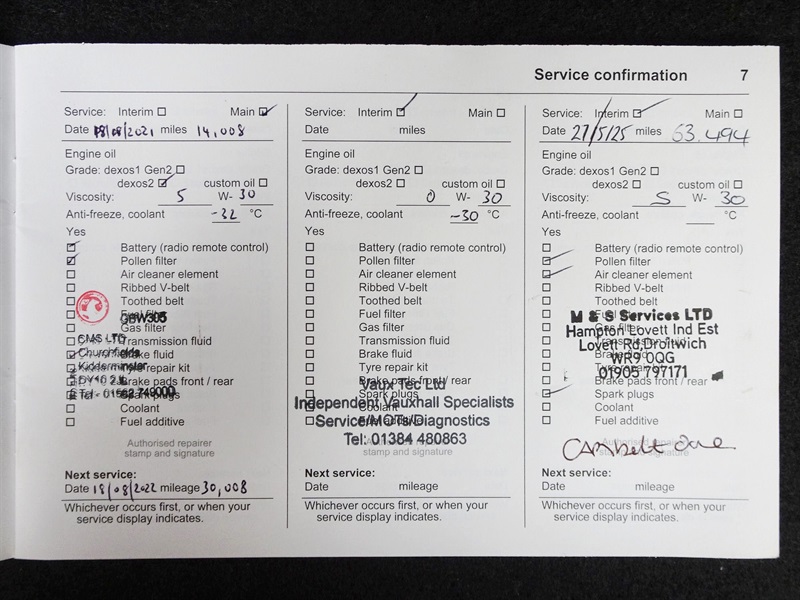 Service confirmation 7
Service: Interim Main
Date 18/08/2021 miles 14,008
Engine oil
Grade: dexos1 Gen2
dexos2 custom oil
Viscosity: 5 W- 30
Anti-freeze, coolant -32 °C
Yes
Battery (radio remote control)
Pollen filter
Air cleaner element
Ribbed V-belt
Toothed belt
Fuel filter
Gas filter
Transmission fluid
Brake fluid
Tyre repair kit
Brake pads front / rear
Spark plugs
Coolant
Fuel additive
CMS LTD
Churchfields
Kidderminster
Authorised repairer
stamp and signature
Next service:
Date 18/08/2022 mileage 30,008
Whichever occurs first, or when your
service display indicates.
Service: Interim Main
Date miles
Engine oil
Grade: dexos1 Gen2
dexos2 custom oil
Viscosity: 0 W- 30
Anti-freeze, coolant -30 °C
Yes
Battery (radio remote control)
Pollen filter
Air cleaner element
Ribbed V-belt
Toothed belt
Fuel filter
Gas filter
Transmission fluid
Brake fluid
Tyre repair kit
Brake pads front / rear
Spark plugs
Coolant
Fuel additive
Vaux Tec Ltd
Independent Vauxhall Specialists
Service/MOTs/Diagnostics
Tel: 01384 480863
Authorised repairer
stamp and signature
Next service:
Date mileage
Whichever occurs first, or when your
service display indicates.
Service: Interim Main
Date 27/5/25 miles 63.494
Engine oil
Grade: dexos1 Gen2
dexos2 custom oil
Viscosity: 5 W- 30
Anti-freeze, coolant °C
Yes
Battery (radio remote control)
Pollen filter
Air cleaner element
Ribbed V-belt
Toothed belt
Fuel filter
Gas filter
Transmission fluid
Brake fluid
Tyre repair kit
Brake pads front / rear
Spark plugs
Coolant
Fuel additive
M & S Services LTD
Hampton Lovett Ind Est
Lovett Rd, Droitwich
WR9 0QG
01905 797171
Cambelt done
Authorised repairer
stamp and signature
Next service:
Date mileage
Whichever occurs first, or when your
service display indicates.